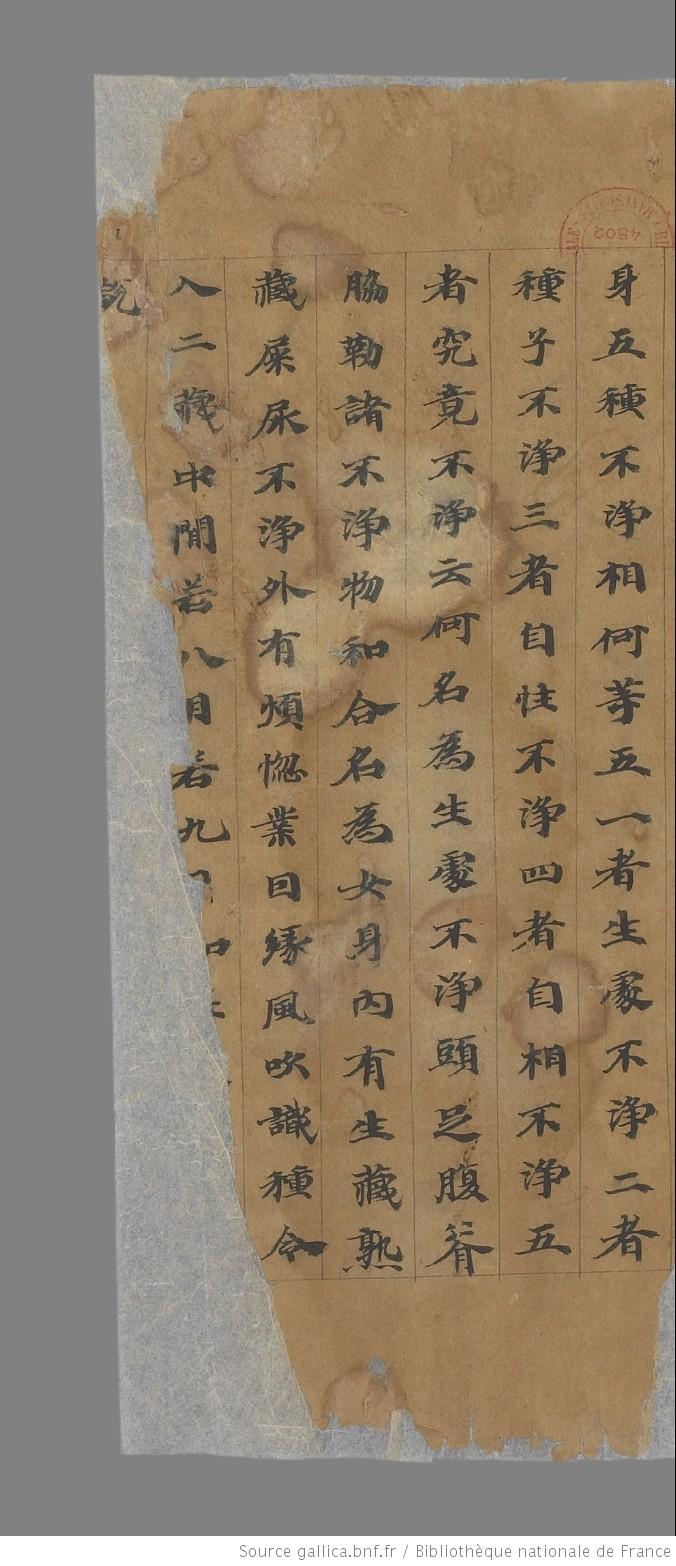 身五種不淨相何等五一者生處不淨二者
種子不淨三者自性不淨四者自相不淨五
者究竟不淨云何名為生處不淨頭足腹脊
脇勒諸不淨物和合名為女身內有生藏熟
藏屎尿不淨外有煩惚業因緣風吹識種令
入二藏中間若八月若九月如
4502
Source gallica.bnf.fr / Bibliothèque nationale de France